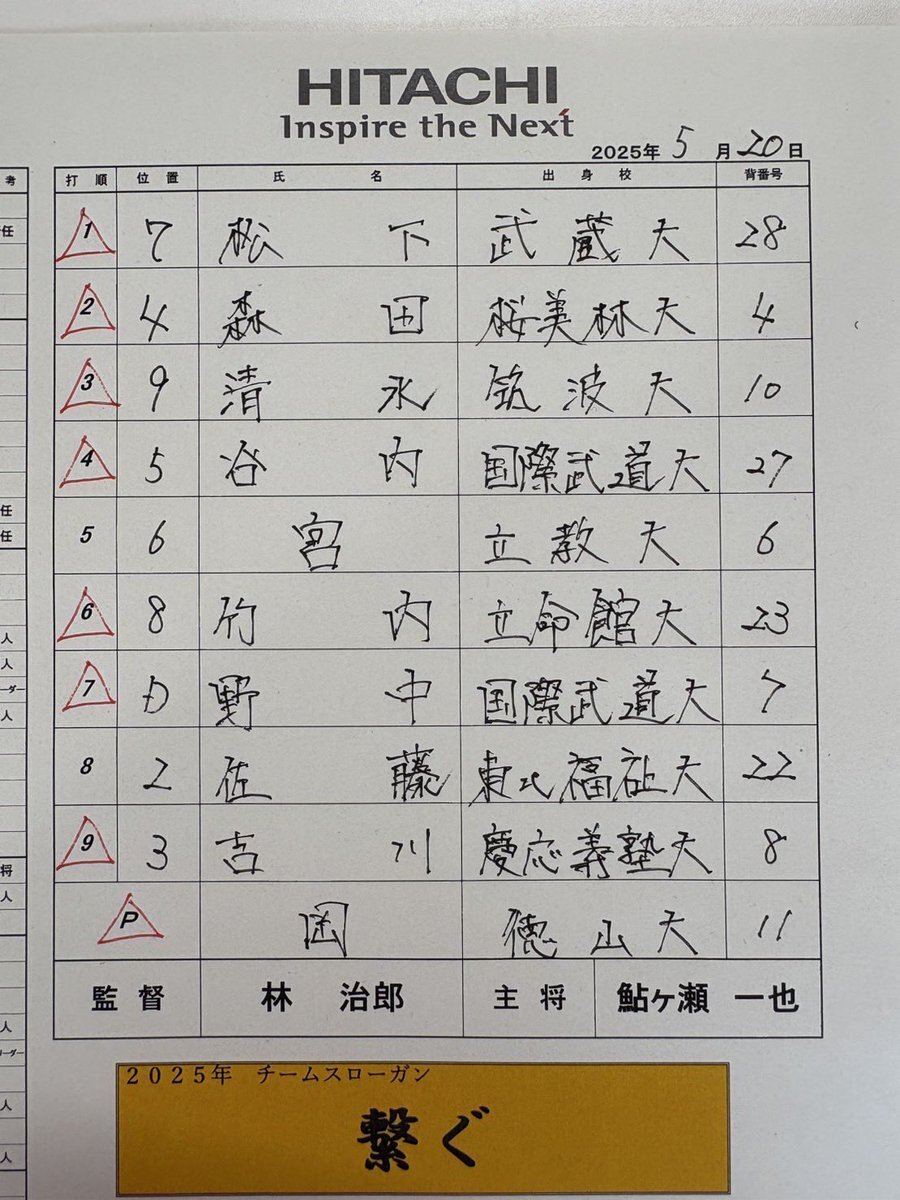 HITACHI
Inspire the Next
2025年 5月20日
打順 位置 氏名 出身校 背番号
1 7 松下 武蔵大 28
2 4 森田 桜美林大 4
3 9 清水 筑波大 10
4 5 谷内 国際武道大 27
5 6 宮 立教大 6
6 8 竹内 立命館大 23
7 D 野中 国際武道大 7
8 2 佐藤 東北福祉大 22
9 3 吉川 慶応義塾大 8
P 岡 徳山大 11
監督 林 治郎 主将 鮎ヶ瀬 一也
2025年 チームスローガン
繋ぐ
考
任
任
任
人
人
ーダー
人
将
人
人
リーダー
人
人